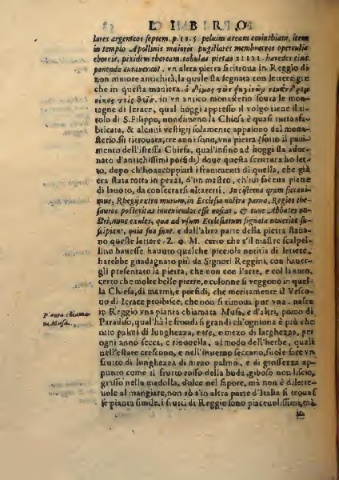 LIBRO
lares argenteos septem. p 1 2 5 peluim aream corinthiam, item
in templo Apollinis maioris pugillares membraneos operculis
eboreis, pixidem eboream, tabulas pictas XIIII. haredes
ponendas una pietra scritta in Reggio di
non minore antichità, la quale sta segnata con lettere gre
che in questa maniera.
in vn antico monistero soura le mon-
tagne di Ierace, hoggi appresso il volgo tiene il ti-
tolo di S. Filippo, nondimeno la Chiesa è quasi tutta fa-
bricata, & alcuni vestigij solamente appaiono del mona-
sterio. si ritrouaua, tre anni sono, vna pietra (sotto il paui-
mento dell'istessa Chiesa, qual insino ad hoggi sta ador-
nato d'antichissimi porfidi) doue questa scrittura ho let-
to, depo ch'hò accoppiati i fragmenti di quella, che già
era stata rotta in pezzi, d'vn mastro, ch'iui facea piane
di lauoro, da consecrarsi altaretti. In cisterna quam fecimus,
Rhegij extra murum, in Ecclesia nostra parua, Regios the-
sauros posteritas inueniendos esse noscat, & tunc Abbates no-
stri, nunc eandem, qua ad vsum Ecclesiarum signata nouerint su-
scipiant, quia sua sunt. e dall'altra parte della pietra staua-
no queste lettere. Z. M. certo che s'il mastro scalpel-
lino hauesse hauuto qualche picciola notitia di lettere,
harebbe guadagnato più da Signori Reggini, con hauer-
gli presentato la pietra, che non con l'arte, e col lauoro.
certo che molte belle pietre, e colonne si veggono in quel-
la Chiesa, di marmi, e porfidi, che meritamente il Vesco-
uo di Ierace prohibisce, che non si rimoua pur vna. nasce
in Reggio vna pianta chiamata Musa, e d'altri, pomo di
Pianta chiama-
ta Musa.
Paradiso, qual hà le frondi sì grandi ch'ogniuna è più che
otto palmi di lunghezza, e mezo di larghezza, per
ogni anno secca, e rinouella, al modo dell'herbe, quali
nell'estate crescono, e nell'inuerno seccano; suole fare vn
frutto di lunghezza di mezo palmo, e di grossezza ap-
punto come il frutto rosso della buda, giboso non liscio,
grosso nella medolla, dolce nel sapore, mà non è dilette-
uole al mangiare, non sò s'in altra parte d'Italia si troua
se pianta simile, i frutti di Reggio sono piaceuolissimi, mà